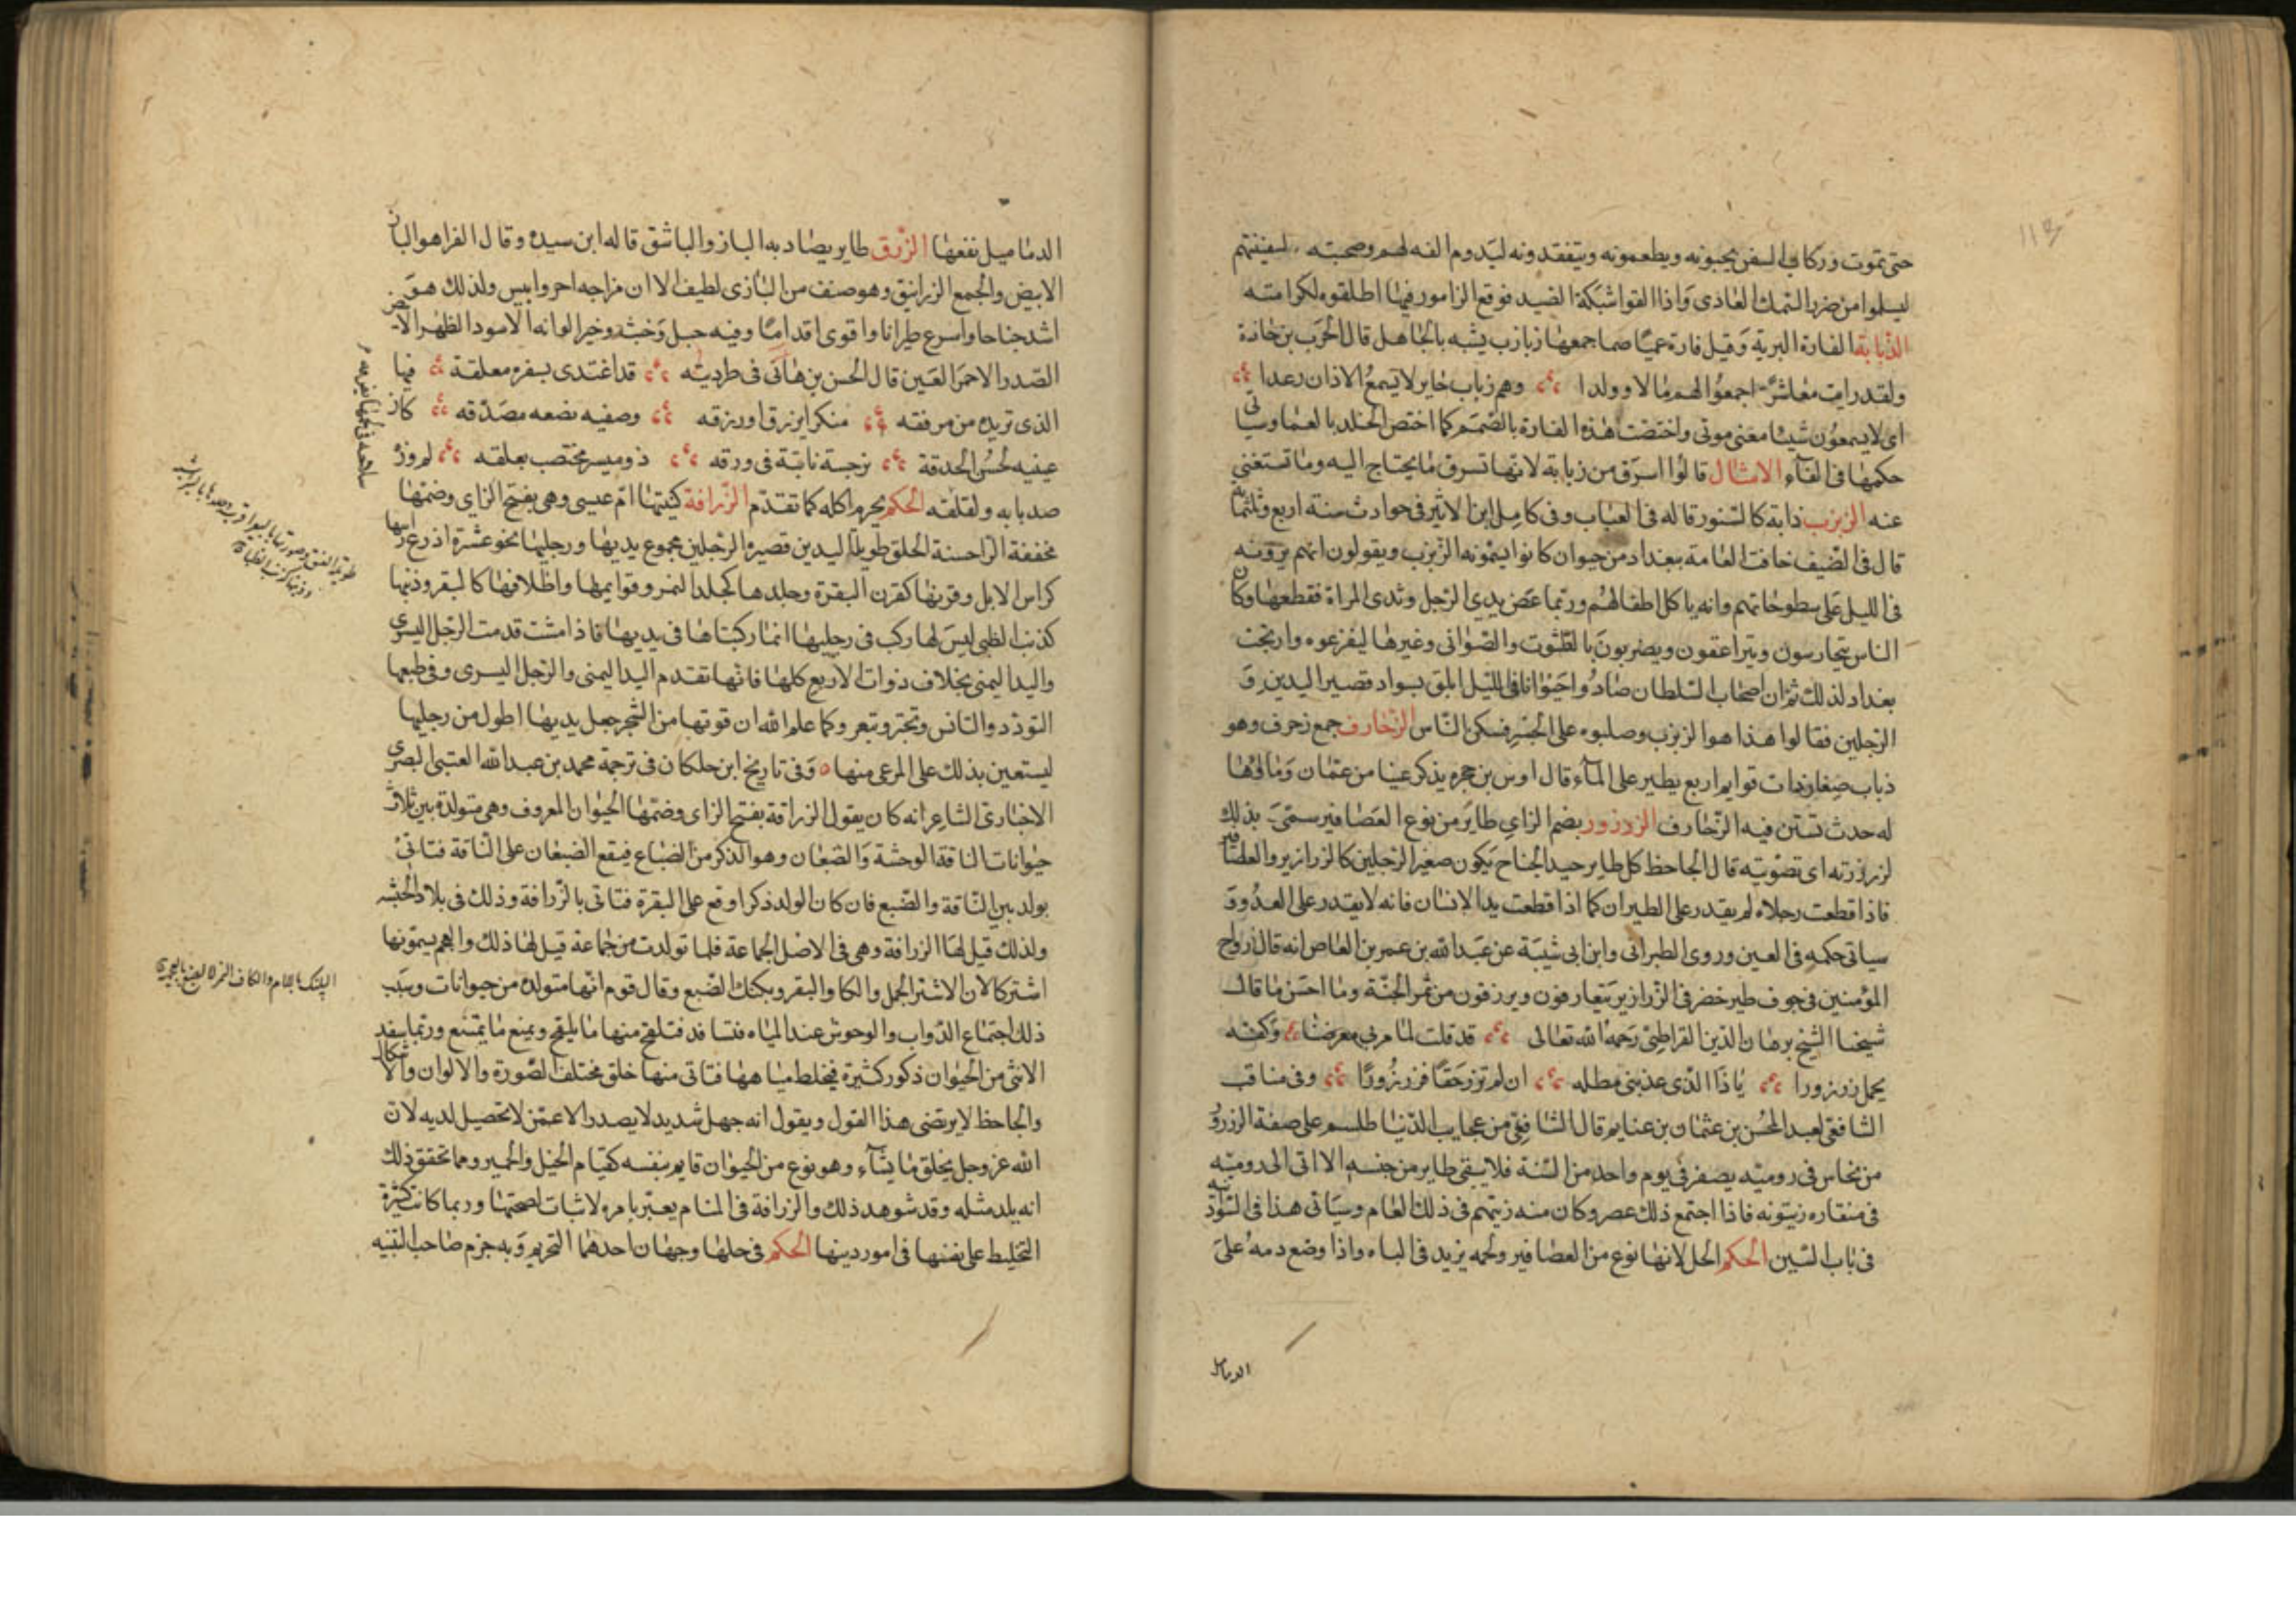 حتى تموت وركاب السفن يحبونه ويطعمونه ويتفقدونه ليدوم الفه لهم وصحبته لسفينتهم
ليسلموا من ضرر السمك العادي واذا القوا شبكة الصيد فوقع الزامور فيها اطلقوه لكرامته
الزبابة الفارة البرية وقيل فارة عميا صما جمعها زباب زب يشبه بالجاهل قال الحرث بن خلدة
ولقد رايت معاشرا اجمعوا لهم مالا وولدا وهم زباب حاير لا يسمع الاذان رعدا
اى لا يسمعون شيئا معنى موتى واختصت هذه الفارة بالصمم كما اختص الخلد بالعما وسياتى
حكمها فى الفاء الامثال قالوا اسرق من زبابة لانها تسرق ما يحتاج اليه وما تستغنى
عنه الزبزب دابة كالسنور قاله فى العباب وفى كامل ابن الاثير فى حوادث سنة اربع وثلثماية
قال فى الصيف خافت العامة ببغداد من حيوان كانوا يسمونه الزبزب ويقولون انهم يرونه
فى الليل على سطوحاتهم وانه ياكل اطفالهم وربما عض يدي الرجل وثدى المراة فقطعها وكان
الناس يتحارسون ويتراعقون ويضربون بالطشوت والصوانى وغيرها ليفزعوه وارتجت
بغداد لذلك ثم ان اصحاب السلطان صادوا حيوانا فى الليل ابلق بسواد قصير اليدين و
الرجلين فقالوا هذا هو الزبزب وصلبوه على الجسر فسكن الناس الزخارف جمع زخرف وهو
ذباب صغار ذات قوايم اربع يطير على الماء قال اوس بن حجره يذكر عينا من عثمان وماؤها
له حدث تستن فيه الزخارف الزرزور بضم الزاي طاير من نوع العصافير سمى بذلك
لزرزرته اى تصويته قال الجاحظ كل طاير حيد الجناح يكون صغير الرجلين كالزرازير والعصافير
فاذا قطعت رجلاه لم يقدر على الطيران كما اذا قطعت يد الانسان فانه لا يقدر على العدو و
سياتى حكمه فى العين وروى الطبرانى وابن ابى شيبة عن عبد الله بن عمر بن العاص انه قال ارواح
المؤمنين فى جوف طير خضر فى الزرازير يتعارفون ويرزقون من ثمر الجنة وما احسن ما قال
شيخنا الشيخ برهان الدين القراطى رحمه الله تعالى قد قلت لما مر بى معرضا وكفه
يحمل زرزورا يا ذا الذى عذبنى مطله ان لم تزر حقا فزر زورا وفى مناقب
الشافعى لعبد المحسن بن عثمان بن غنايم قال الشافعى من عجايب الدنيا طلسم على صفة الزرزور
من نحاس فى روميه يصفر فى يوم واحد من السنة فلا يبقى طاير من جنسه الا اتى الى روميه
فى منقاره زيتونه فاذا اجتمع ذلك عصر وكان منه زيتهم فى ذلك العام وسياتى هذا فى السودانيه
فى باب السين الحكم الحل لانها نوع من العصافير ولحمه يزيد فى الباه واذا وضع دمه على
الدماميل
الدماميل نفعها الزرق طاير يصاد به الباز والباشق قاله ابن سيده وقال الفرا هو الباز
الابيض والجمع الزرانيق وهو صنف من البازى لطيف الا ان مزاجه احر وايبس ولذلك هو
اشد جناحا واسرع طيرانا واقوى اقداما وفيه حبل وخبث وخير الوانه الاسود الظهر الابيض
الصدر الاحمر العين قال الحسن بن هانى فى طرديته قد اغتدى بسفره معلقة فيها
الذى تريده من مرفقه منكرا بزرق اوزرقه وصفيه نضعه مصدقه كان
عينيه لحسن الحدقة نرجسة نابتة فى ورقه ذو ميسر مختصب بعلقه لم وزّ
صدبابه ولقلقه الحكم يحرم اكله كما تقدم الزرافة كنيتها ام عيسى وهى بفتح الزاى وضمها
مخففة الرا حسنة الخلق طويلة اليدين قصيرة الرجلين مجموع يديها ورجليها نحو عشرة اذرع راسها
كراس الابل وقرنها كقرن البقرة وجلدها كجلد النمر وقوايمها واظلافها كالبقر وذنبها
كذنب الظبى ليس لها ركب فى رجليها انما ركبتاها فى يديها فاذا مشت قدمت الرجل اليسرى
واليد اليمنى بخلاف ذوات الاربع كلها فانها تقدم اليد اليمنى والرجل اليسرى وفى طبعها
التودد والتانس وتجتر وتبعر وكما علم الله ان قوتها من الشجر جعل يديها اطول من رجليها
ليستعين بذلك على المرعى منها وفى تاريخ ابن خلكان فى ترجمة محمد بن عبد الله العتبى البصرى
الاخبارى الشاعر انه كان يقول الزرافة بفتح الزاى وضمها الحيوان المعروف وهى متولدة بين ثلاث
حيوانات الناقة الوحشة والضبعان وهو الذكر من الضباع فيقع الضبعان على الناقة فتاتى
بولد بين الناقة والضبع فان كان الولد ذكرا وقع على البقرة فتاتى بالزرافة وذلك فى بلاد الحبشه
ولذلك قيل لها الزرافة وهى فى الاصل الجماعة فلما تولدت من جماعة قيل لها ذلك والعجم يسمونها
اشتركا لان الاشتر الجمل والكا والبقر وبكنك الضبع وقال قوم انها متولده من حيوانات وسبب
ذلك اجتماع الدواب والوحوش عند المياه فتسافد فتلقح منها ما يلقح ويمنع ما يمتنع وربما سفد
الانثى من الحيوان ذكور كثيرة فيختلط مياهها فتاتى منها خلق مختلف الصورة والالوان والاشكال
والجاحظ لا يرتضى هذا القول ويقول انه جهل شديد لا يصدر الا عمن لا تحصيل لديه لان
الله عز وجل يخلق ما يشاء وهو نوع من الحيوان قايم بنفسه كقيام الخيل والحمير ومما تحقق ذلك
انه يلد مثله وقد شوهد ذلك والزرافة فى المنام يعتبر بامره لاثبات لصحتها وربما كانت كثيرة
التخليط على نفسها فى امور دينها الحكم فى حلها وجهان احدهما التحريم وبه جزم صاحب التنبيه